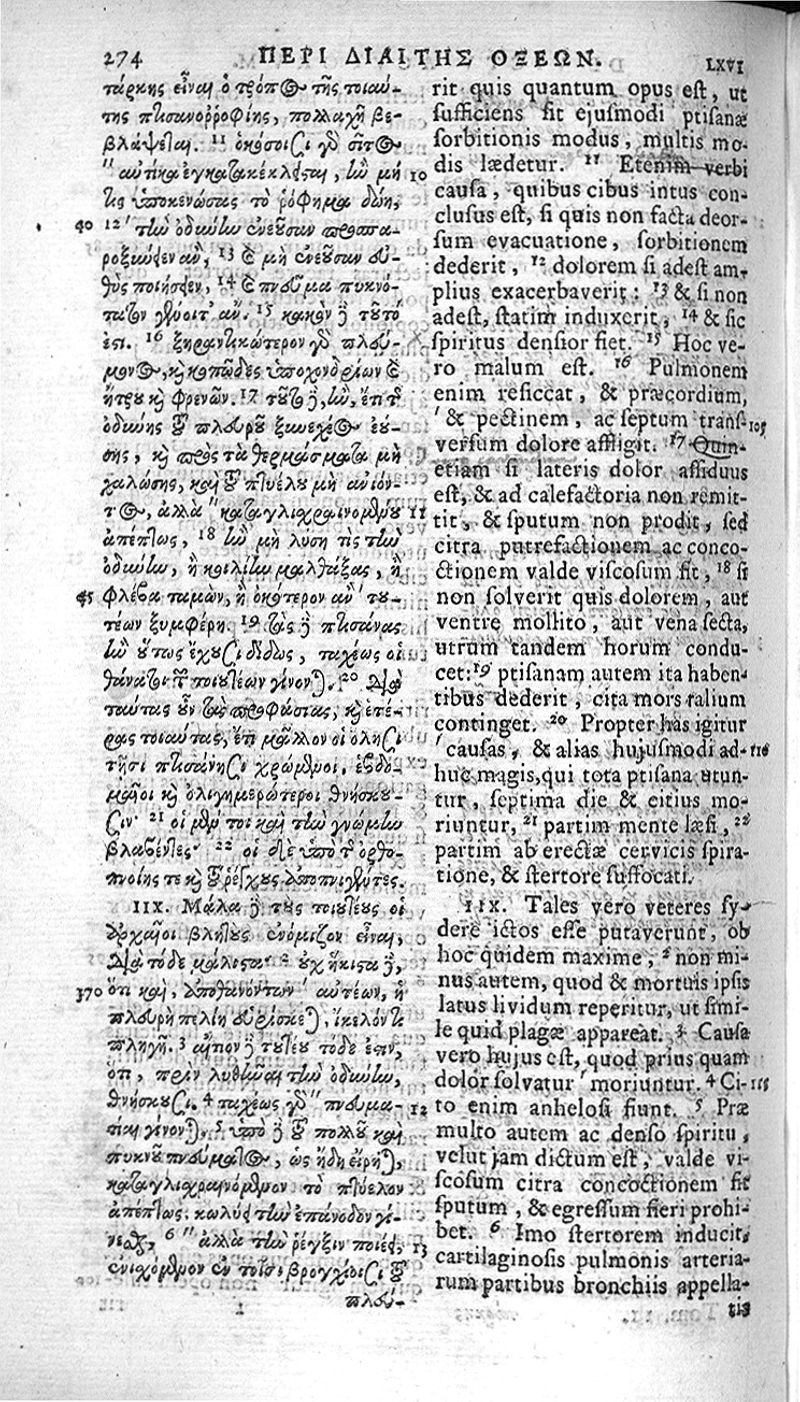 274 ΠΕΡΙ ΔΙΑΙΤΗΣ ΟΞΕΩΝ. LXVI
τάρκης εἶναι ὁ τρόπος τῆς τοιαύ-
της πτισανοῤῥοφίης, πολλαχῆ βε-
βλάψεται. 11 ὁκόσοισι γὸ σῖτος
" αὐτίκα ἐγκατακέκλεισται, ἢν μή
τις ὑποκενώσας τὸ ῥόφημα δώῃ,
40 12 ' τὴν ὀδύνην ἐνεοῦσαν προσπα-
ροξύνειεν ἂν, 13 καὶ μὴ ἐνεοῦσαν εὐ-
θὺς ποιήσειεν, 14 καὶ πνεῦμα πυκνό-
τερον γένοιτ' ἄν. 15 κακὸν δὲ τοῦτό
ἐστι. 16 ξηραντικώτερον γὸ πλεύ-
μονος, καὶ κοπῶδες ὑποχονδρίων καὶ
ἤτρου καὶ φρενῶν. 17 τοῦτο δὲ, ἢν, ἔτι τοῦ
ὀδύνης τοῦ πλευροῦ ξυνεχέος ἐού-
σης, καὶ πρὸς τὰ θερμάσματα μὴ
χαλώσης, καὶ τοῦ πτυέλου μὴ ἀνιόν-
τος, ἀλλὰ " καταγλισχραινομένου
ἀσέπτως, 18 ἢν μὴ λύσῃ τὶς τὴν
ὀδύνην, ἢ κοιλίην μαλθάξας, ἢ
45 φλέβα ταμὼν, ἢ ὁκότερον ἂν ' του-
τέων ξυμφέρῃ. 19 τὰς δὲ πτισάνας
ἢν οὕτως ἔχουσι διδῷς, ταχέως οἱ
θάνατοι τῶν τοιουτέων γίνονται. 20 Διὰ
ταύτας οὖν τὰς προφάσιας, καὶ ἑτέ-
ρας τοιαύτας, ἔτι μᾶλλον οἱ ὅλῃσι
τῇσι πτισάνῃσι χρώμενοι, ἑβδο-
μαῖοι καὶ ὀλιγημερώτεροι θνήσκου-
σιν· 21 οἱ μέν τοι καὶ τὴν γνώμην
βλαβέντες· 22 οἱ δὲ ὑπὸ τῆς ὀρθο-
πνοίης τε καὶ τοῦ ῥέγχους ἀποπνιγέντες.
IIX. Μάλα δὲ τοὺς τοιουτέους οἱ
ἀρχαῖοι βλητοὺς ἐνόμιζον εἶναι,
διὰ τόδε μάλιστα· 2 οὐχ ἥκιστα δὲ,
370 ὅτι καὶ, ἀποθανόντων ' αὐτέων, ἡ
πλευρὴ πελιὴ εὑρίσκεται, ἴκελόν τι
πληγῇ. 3 αἴτιον δὲ τουτέου τόδε ἐστὶν,
ὅτι, πρὶν λυθῆναι τὴν ὀδύνην,
θνήσκουσι. 4 ταχέως γὸ " πνευμα-
τίαι γίνονται, 5 ὑπὸ δὲ τοῦ πολλοῦ καὶ
πυκνοῦ πνεύματος, ὡς ἤδη εἴρηται,
καταγλισχραινόμενον τὸ πτύελον
ἀπέπτως, κωλύει τὴν ἐπάνοδον γί-
νεσθαι, 6 " ἀλλὰ τὴν ῥέγξιν ποιέει,
ἐνισχόμενον ἐν τοῖσι βρογχίοισι τοῦ
πλεύ-
rit quis quantum opus est, ut
sufficiens sit ejusmodi ptisanæ
sorbitionis modus, multis mo-
10 dis lædetur. 11 Etenim verbi
causa, quibus cibus intus con-
clusus est, si quis non facta deor-
sum evacuatione, sorbitionem
dederit, 12 dolorem si adest am-
plius exacerbaverit: 13 & si non
adest, statim induxerit, 14 & sic
spiritus densior fiet. 15 Hoc ve-
ro malum est. 16 Pulmonem
enim reficcat, & præcordium,
' & pectinem, ac septum trans- 105
versum dolore affligit. 17 Quin-
etiam si lateris dolor assiduus
est, & ad calefactoria non remit-
11 tit, & sputum non prodit, sed
citra putrefactionem ac conco-
ctionem valde viscosum fit, 18 si
non solverit quis dolorem, aut
ventre mollito, aut vena secta,
utrum tandem horum condu-
cet: 19 ptisanam autem ita haben-
tibus dederit, cita mors talium
continget. 20 Propter has igitur
' causas, & alias hujusmodi ad- 110
huc magis, qui tota ptisana utun-
tur, septima die & citius mo-
riuntur, 21 partim mente læsi, 22
partim ab erectæ cervicis spira-
tione, & stertore suffocati.
IIX. Tales vero veteres sy-
dere ictos esse putaverunt, ob
hoc quidem maxime, 2 non mi-
nus autem, quod & mortuis ipsis
latus lividum reperitur, ut simi-
le quid plagæ appareat. 3 Causa
vero hujus est, quod prius quam
dolor solvatur ' moriuntur. 4 Ci- 115
12 to enim anhelosi fiunt. 5 Præ
multo autem ac denso spiritu,
velut jam dictum est, valde vi-
scosum citra concoctionem fit
sputum, & egressum fieri prohi-
bet. 6 Imo stertorem inducit,
13 cartilaginosis pulmonis arteria-
rum partibus bronchiis appella-
tis